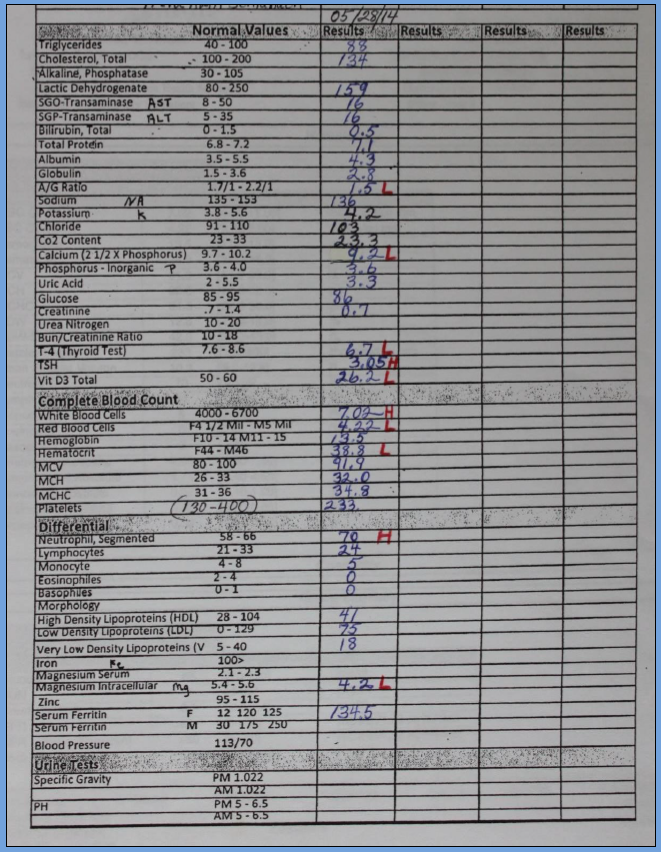 05/28/14
Normal Values Results Results Results Results
Triglycerides 40 - 100 88
Cholesterol, Total 100 - 200 134
Alkaline, Phosphatase 30 - 105
Lactic Dehydrogenate 80 - 250 159
SGO-Transaminase AST 8 - 50 16
SGP-Transaminase ALT 5 - 35 16
Bilirubin, Total 0 - 1.5 0.5
Total Protein 6.8 - 7.2 7.1
Albumin 3.5 - 5.5 4.3
Globulin 1.5 - 3.6 2.8
A/G Ratio 1.7/1 - 2.2/1 1.5 L
Sodium NA 135 - 153 136
Potassium K 3.8 - 5.6 4.2
Chloride 91 - 110 103
Co2 Content 23 - 33 23.3
Calcium (2 1/2 X Phosphorus) 9.7 - 10.2 9.2 L
Phosphorus - Inorganic P 3.6 - 4.0 3.6
Uric Acid 2 - 5.5 3.3
Glucose 85 - 95 86
Creatinine .7 - 1.4 0.7
Urea Nitrogen 10 - 20
Bun/Creatinine Ratio 10 - 18
T-4 (Thyroid Test) 7.6 - 8.6 6.7 L
TSH 3.05 H
Vit D3 Total 50 - 60 26.2 L
Complete Blood Count
White Blood Cells 4000 - 6700 7.02 H
Red Blood Cells F4 1/2 Mil - M5 Mil 4.22 L
Hemoglobin F10 - 14 M11 - 15 13.5
Hematocrit F44 - M46 38.8 L
MCV 80 - 100 91.9
MCH 26 - 33 32.0
MCHC 31 - 36 34.8
Platelets (130-400) 233
Differential
Neutrophil, Segmented 58 - 66 70 H
Lymphocytes 21 - 33 24
Monocyte 4 - 8 5
Eosinophiles 2 - 4 0
Basophiles 0 - 1 0
Morphology
High Density Lipoproteins (HDL) 28 - 104 41
Low Density Lipoproteins (LDL) 0 - 129 75
Very Low Density Lipoproteins (V 5 - 40 18
Iron Fe 100>
Magnesium Serum 2.1 - 2.3
Magnesium Intracellular mg 5.4 - 5.6 4.2 L
Zinc 95 - 115
Serum Ferritin F 12 120 125 134.5
Serum Ferritin M 30 175 250
Blood Pressure 113/70
Urine Tests
Specific Gravity PM 1.022
AM 1.022
PH PM 5 - 6.5
AM 5 - 6.5